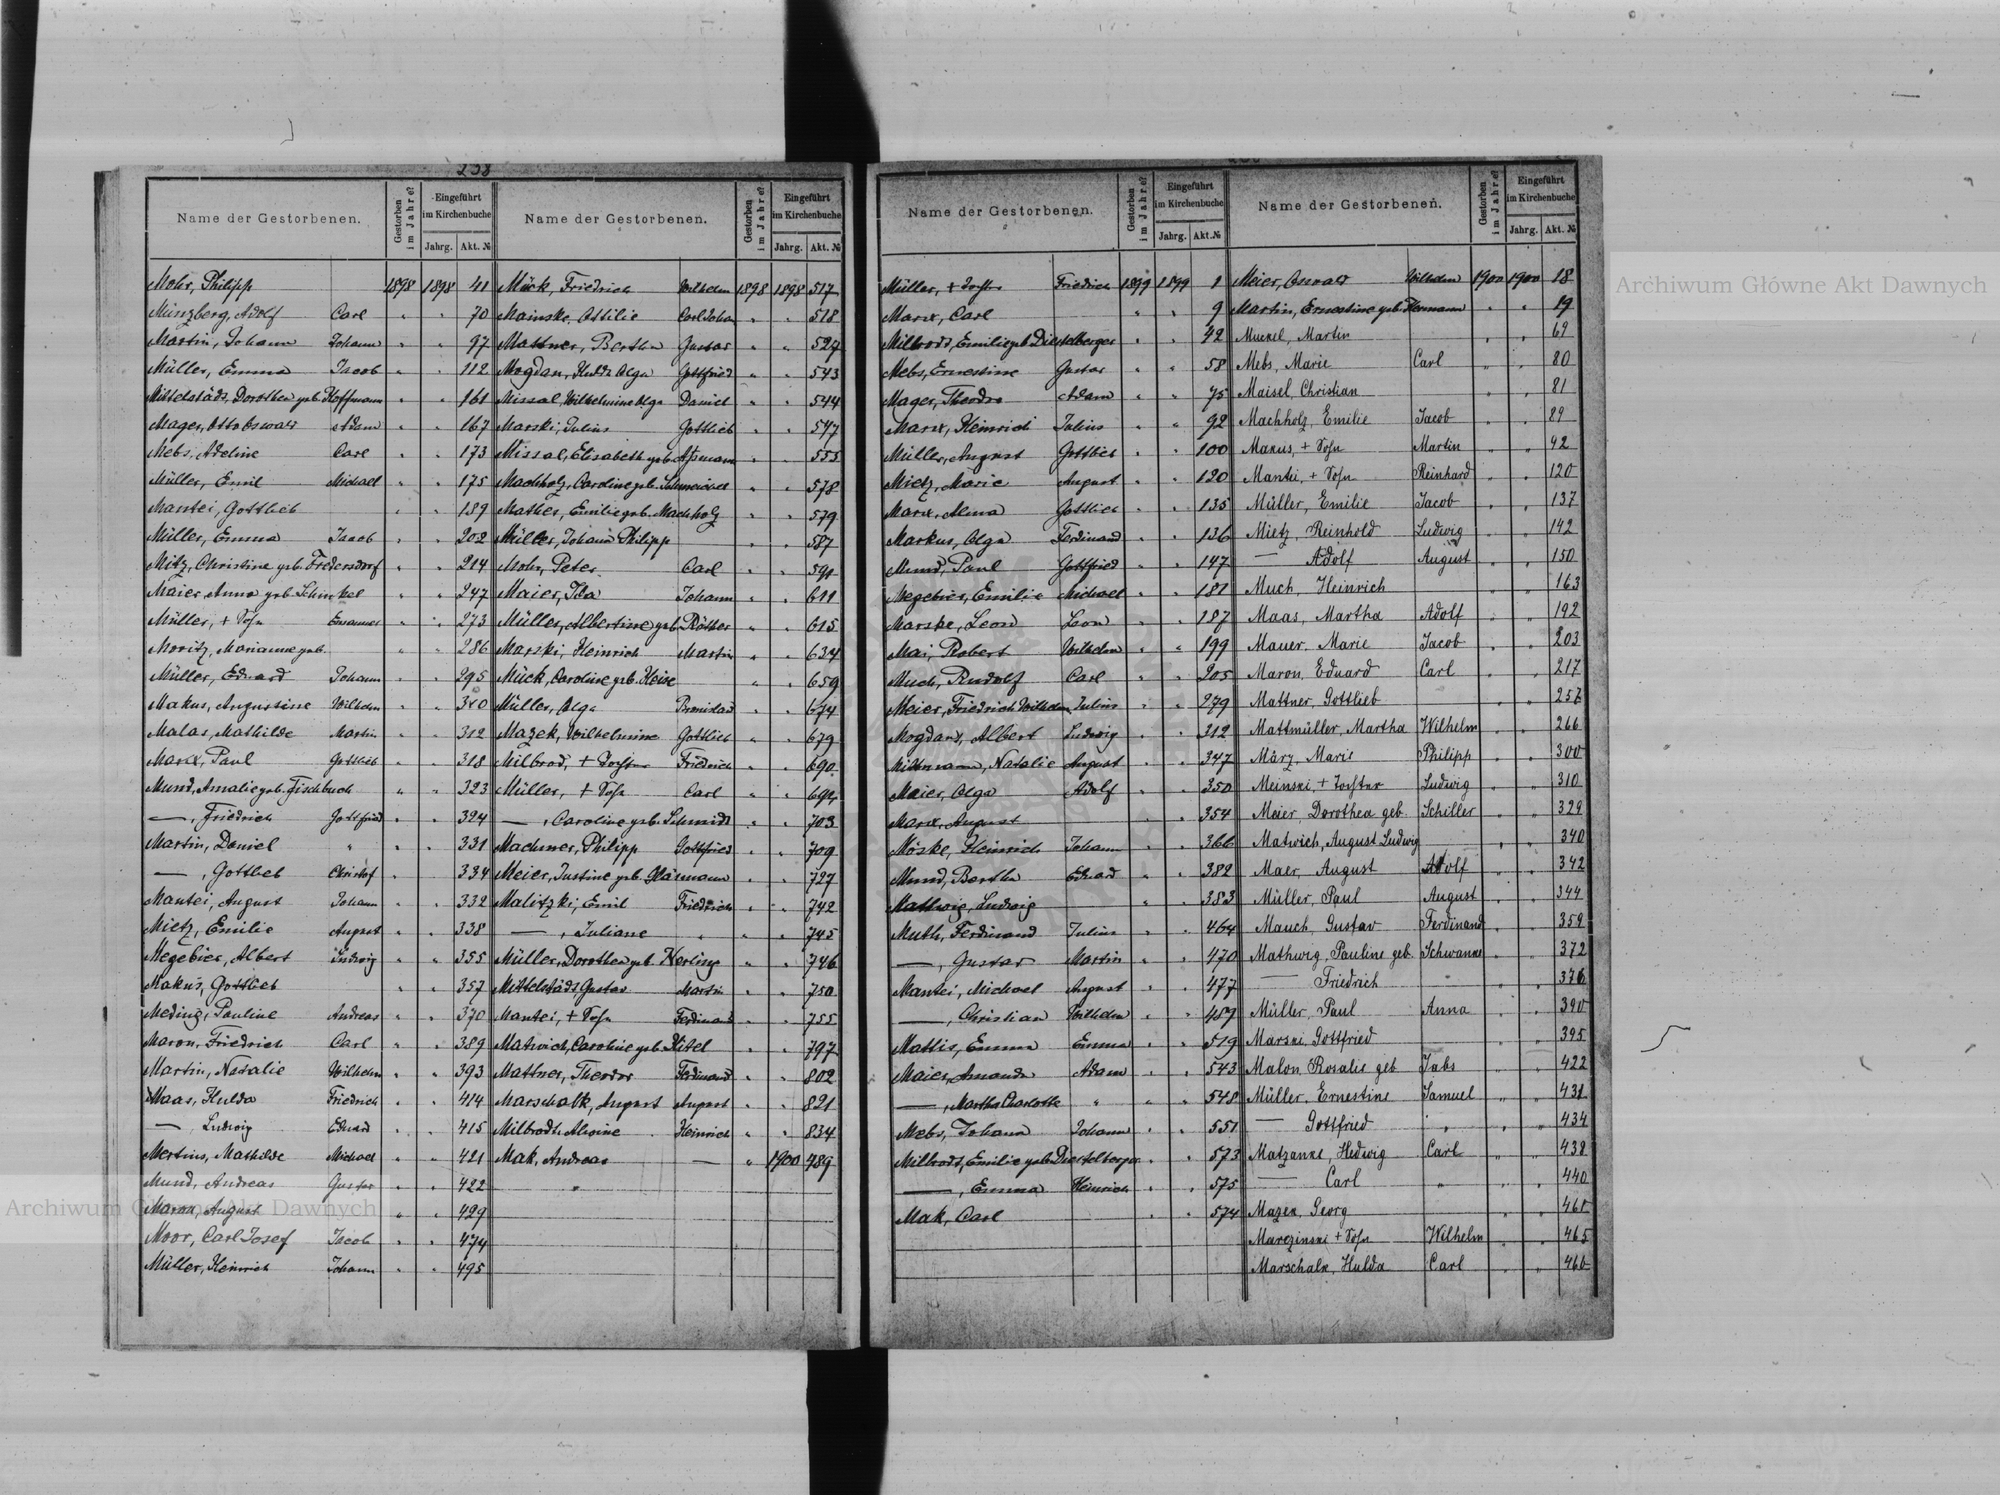 238
Name der Gestorbenen. Gestorben im Jahre? Eingeführt im Kirchenbuche Jahrg. Akt. №
Mohr, Philipp 1898 1898 41
Münzberg, Adolf Carl " " 70
Martin, Johann Johann " " 97
Müller, Emma Jacob " " 112
Mittelstädt, Dorothea geb. Hoffmann " " 161
Mager, Otto Oswald Adam " " 167
Mebs, Adeline Carl " " 173
Müller, Emil Michael " " 175
Mantei, Gottlieb " " 189
Müller, Emma Jacob " " 202
Mitz, Christine geb. Fredersdorf " " 214
Maier, Anna geb. Schinkel " " 247
Müller, + Sohn " " 273
Moritz, Marianne geb. " " 286
Müller, Eduard Johann " " 295
Makus, Augustine Wilhelm " " 310
Malas, Mathilde Martin " " 312
Marx, Paul Gottlieb " " 318
Mund, Amalie geb. Fischbuch " " 323
—, Friedrich Gottfried " " 324
Martin, Daniel " " " 331
—, Gottlieb Christof " " 334
Mantei, August Johann " " 332
Mietz, Emilie August " " 338
Megebier, Albert Ludwig " " 355
Makus, Gottlieb " " 357
Meding, Pauline Andreas " " 370
Maron, Friedrich Carl " " 389
Martin, Natalie Wilhelm " " 393
Maas, Hulda Friedrich " " 414
—, Ludwig Eduard " " 415
Mertins, Mathilde Michael " " 421
Mund, Andreas Gustav " " 422
Maron, August " " 429
Moor, Carl Josef Jacob " " 474
Müller, Heinrich Johann " " 495
Name der Gestorbenen. Gestorben im Jahre? Eingeführt im Kirchenbuche Jahrg. Akt. №
Mück, Friedrich Wilhelm 1898 1898 517
Mainske, Ottilie Carl Johan " " 518
Mattner, Bertha Gustav " " 527
Mogdan, Hulda Olga Gottfried " " 543
Missal, Wilhelmine Olga Daniel " " 544
Marski, Julius Gottlieb " " 547
Missal, Elisabeth geb. Assmann " " 555
Machholz, Caroline geb. Schmeichel " " 578
Mathes, Emilie geb. Machholz " " 579
Müller, Johann Philipp " " 587
Mohr, Peter Carl " " 591
Maier, Ida Johann " " 611
Müller, Albertine geb. Röther " " 615
Marski, Heinrich Martin " " 634
Mück, Caroline geb. Heise " " 659
Müller, Olga " " 674
Mazek, Wilhelmine Gottlieb " " 679
Milbrod, + Tochter Friedrich " " 690
Müller, + Sohn Carl " " 692
—, Caroline geb. Schmidt " " 703
Machner, Philipp Gottfried " " 709
Meier, Justine geb. Gläsmann " " 727
Malitzki, Emil Friedrich " " 742
—, Juliane " " " 745
Müller, Dorothea geb. Kerling " " 746
Mittelstädt Gustav Martin " " 750
Mantei, + Sohn Ferdinand " " 755
Matwich, Caroline geb. Kitel " " 797
Mattner, Theodor Ferdinand " " 802
Marschalk, August August " " 821
Milbrodt, Alwine Heinrich " " 834
Mak, Andreas — " 1900 489
Name der Gestorbenen. Gestorben im Jahre? Eingeführt im Kirchenbuche Jahrg. Akt. №
Müller, + Tochter Friedrich 1899 1899 1
Marx, Carl " " 9
Milbrodt, Emilie geb. Diesselberger 42
Mebs, Ernestine Gustav " " 58
Mager, Theodor Adam " " 75
Marx, Heinrich Julius " " 92
Müller, August Gottlieb " " 100
Mietz, Marie August " " 120
Marx, Alma Gottlieb " " 135
Markus, Olga Ferdinand " " 136
Mund, Paul Gottfried " " 147
Megebier, Emilie Michael " " 181
Marske, Leon Leon " " 187
Mai, Robert Wilhelm " " 199
Much, Rudolf Carl " " 205
Meier, Friedrich Wilhelm Julius " " 279
Mogdans, Albert Ludwig " " 312
Mittmann, Natalie August " " 347
Maier, Olga Adolf " " 350
Marx, August " " 354
Möske, Heinrich Johann " " 366
Mund, Bertha Eduard " " 382
Mathwig, Ludwig " " 383
Muth, Ferdinand Julius " " 464
—, Gustav Martin " " 470
Mantei, Michael August " " 477
—, Christian Wilhelm " " 487
Mattis, Emma Emma " " 519
Maier, Amanda Adam " " 543
—, Martha Charlotte " " " 548
Mebs, Johann Johann " " 551
Milbrodt, Emilie geb. Diesselberger " " 573
—, Emma Heinrich " " 575
Mak, Carl " " 574
Name der Gestorbenen. Gestorben im Jahre? Eingeführt im Kirchenbuche Jahrg. Akt. №
Meier, Oswald Wilhelm 1900 1900 18
Martin, Ernestine geb. Hermann " " 19
Muckel, Martin " " 69
Mebs, Marie Carl " " 80
Maisel, Christian " " 81
Machholz, Emilie Jacob " " 89
Makus, + Sohn Martin " " 92
Mantei, + Sohn Reinhard " " 120
Müller, Emilie Jacob " " 137
Mietz, Reinhold Ludwig " " 142
— Adolf August " " 150
Much, Heinrich " " 163
Maas, Martha Adolf " " 192
Mauer, Marie Jacob " " 203
Maron, Eduard Carl " " 217
Mattner, Gottlieb " " 257
Mattmüller, Martha Wilhelm " " 266
März, Marie Philipp " " 300
Meinski, + Tochter Ludwig " " 310
Meier, Dorothea geb. Schiller " " 329
Matwich, August Ludwig " " 340
Maer, August Adolf " " 342
Müller, Paul August " " 344
Mauch, Gustav Ferdinand " " 359
Mathwig, Pauline geb. Schwanke " " 372
— Friedrich " " 376
Müller, Paul Anna " " 390
Marski, Gottfried " " 395
Malon, Rosalie geb Jabs " " 422
Müller, Ernestine Samuel " " 431
— Gottfried " " " 434
Matzanke, Hedwig Carl " " 438
— Carl " " " 440
Mazek, Georg " " 461
Marczinski + Sohn Wilhelm " " 465
Marschalk, Hulda Carl " " 466
Archiwum Główne Akt Dawnych
Archiwum Główne Akt Dawnych